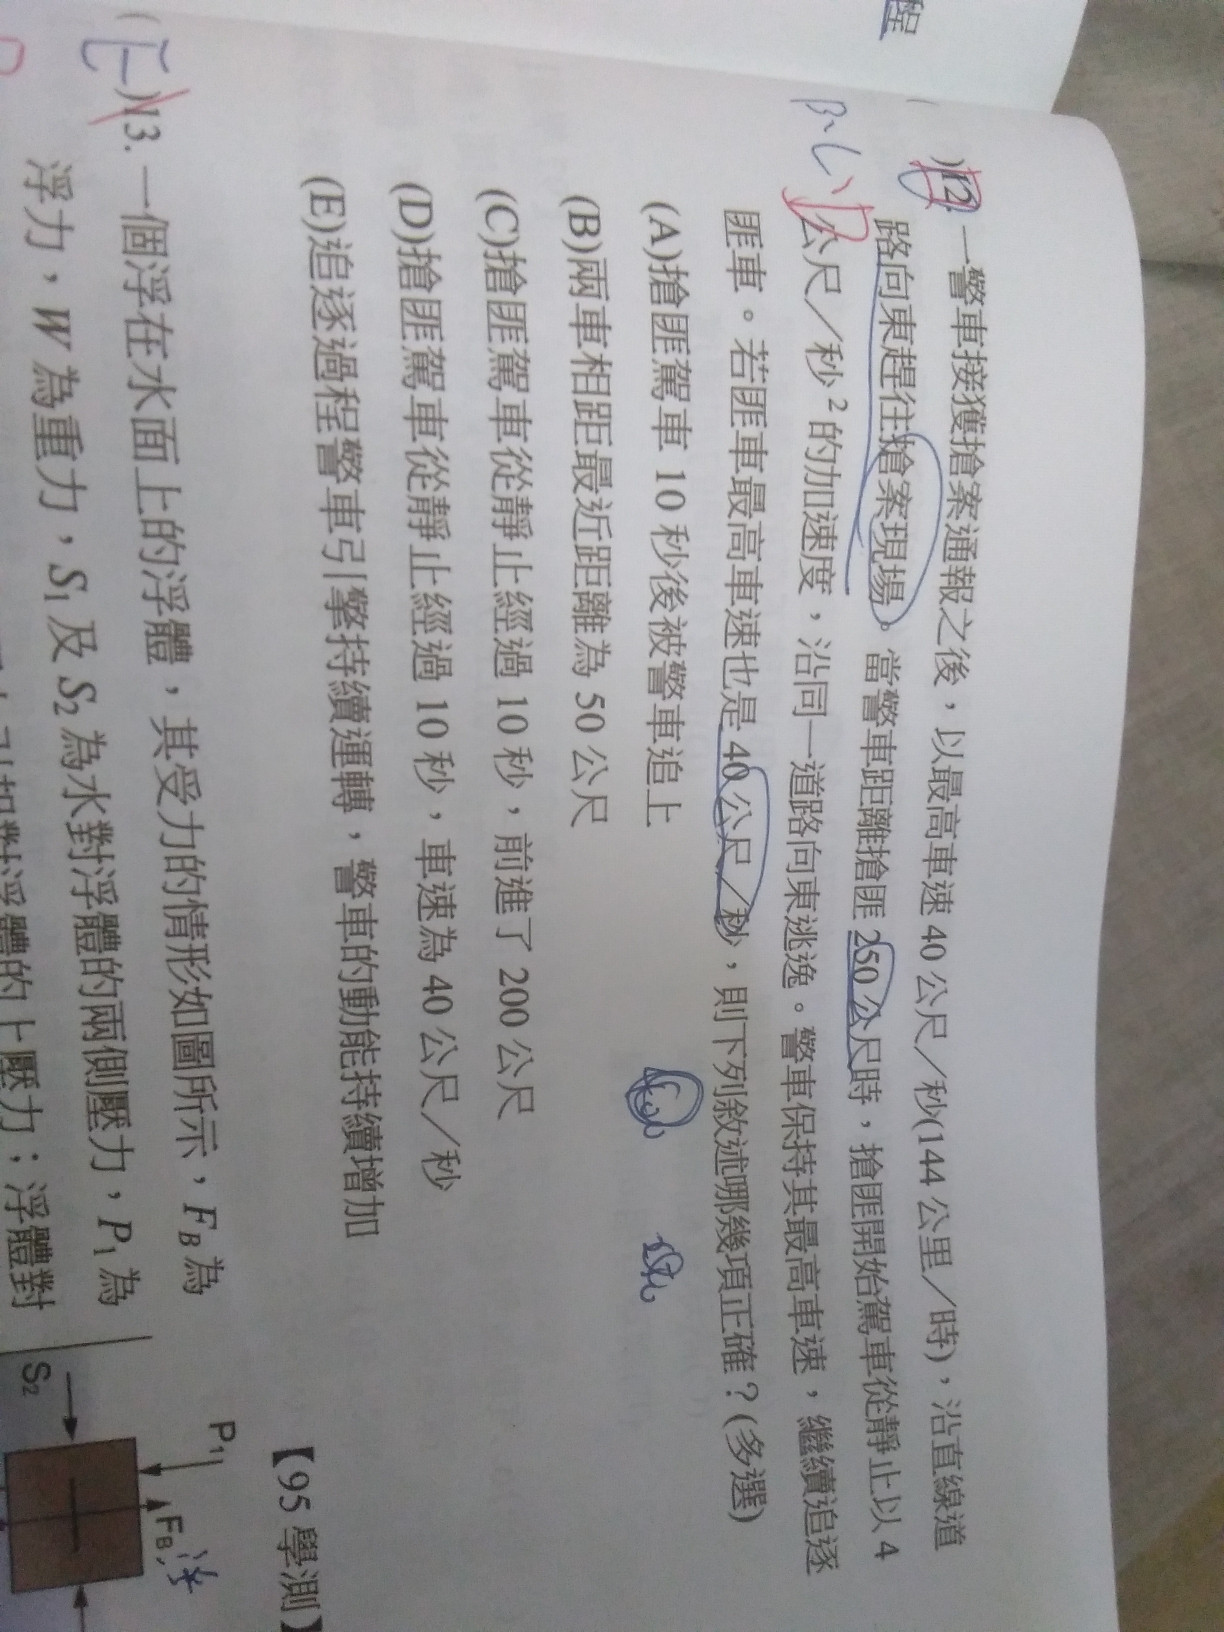 程
( )12.一警車接獲搶案通報之後，以最高車速 40 公尺／秒(144 公里／時)，沿直線道
路向東趕往搶案現場。當警車距離搶匪 250 公尺時，搶匪開始駕車從靜止以 4
公尺／秒²的加速度，沿同一道路向東逃逸。警車保持其最高車速，繼續追逐
匪車。若匪車最高車速也是 40 公尺／秒，則下列敘述哪幾項正確？(多選)
(A)搶匪駕車 10 秒後被警車追上
(B)兩車相距最近距離為 50 公尺
(C)搶匪駕車從靜止經過 10 秒，前進了 200 公尺
(D)搶匪駕車從靜止經過 10 秒，車速為 40 公尺／秒
(E)追逐過程警車引擎持續運轉，警車的動能持續增加
【95 學測】
( )13.一個浮在水面上的浮體，其受力的情形如圖所示，F_B 為
浮力，W 為重力，S₁ 及 S₂ 為水對浮體的兩側壓力，P₁ 為
對浮體的上壓力；浮體對
P₁
F_B
S₂